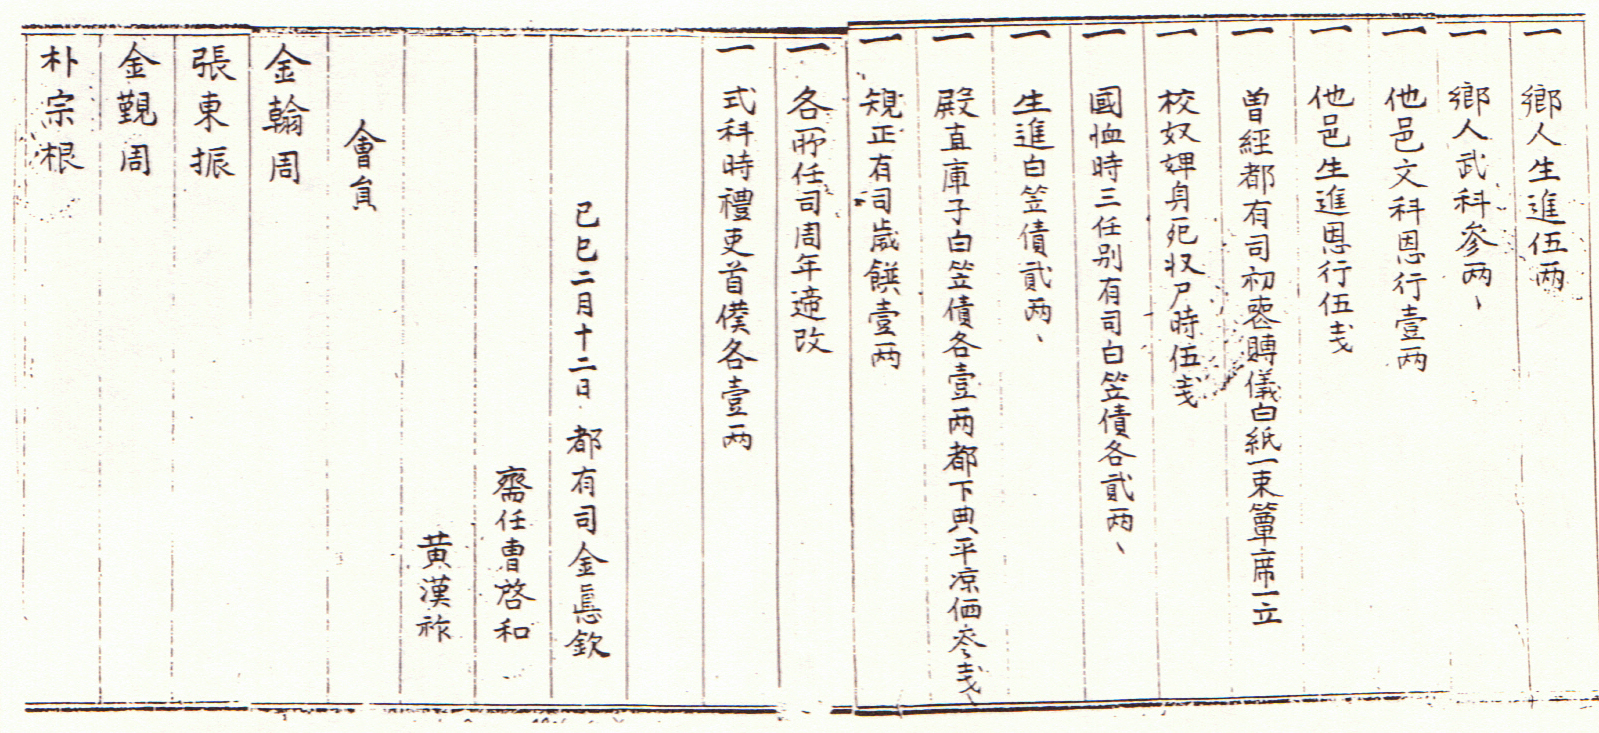 一 鄉人生進伍两
一 鄉人武科參两、
一 他邑文科恩行壹两
一 他邑生進恩行伍戔
一 曽經都有司初喪賻儀白紙一束簟席一立
一 校奴婢身死収尸時伍戔
一 國恤時三任別有司白笠債各貳两、
一 生進白笠債貳两、
一 殿直庫子白笠債各壹两都下典平凉価參戔、
一 規正有司歲饌壹两
一 各所任司周年遞改
一 式科時禮吏首僕各壹两
己巳二月十二日 都有司金悳欽
齋任曺啓和
黄漢祚
會員
金翰周
張東振
金觀周
朴宗根